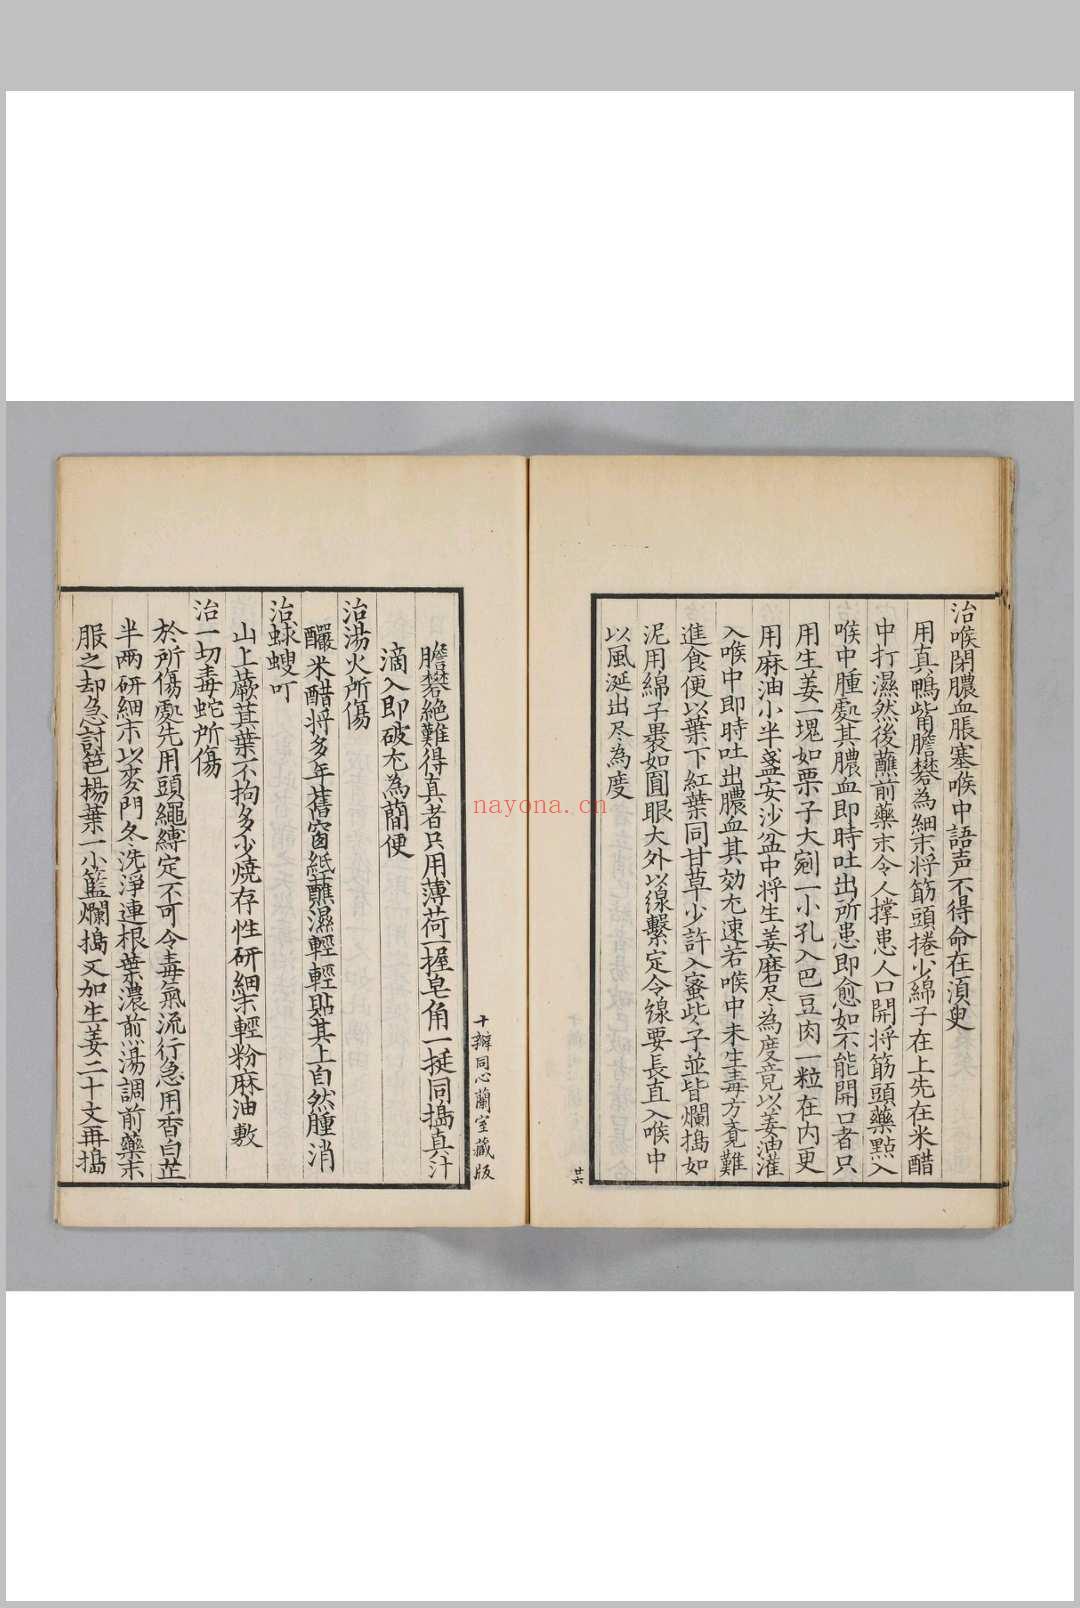 治喉閉膿血脹塞喉中語声不得命在湏臾
用真鴨觜膽礬為細末将筋頭捲少綿子在上先在米醋
中打濕然後蘸前藥末令人撑患人口開将筋頭藥點入
喉中腫處其膿血即時吐出所患即愈如不能開口者只
用生姜一塊如栗子大剜一小孔入巴豆肉一粒在内更
用麻油小半盞安沙盆中将生姜磨尽為度竟以姜油灌
入喉中即時吐出膿血其効尤速若喉中未生毒方覔難
進食便以葉下紅葉同甘草少許入蜜些子並皆爛搗如
泥用綿子裹如圓眼大外以線繫定令線要長直入喉中
以風涎出尽為度
廿六
十瓣同心蘭室藏版
膽礬絶難得真者只用薄荷一握皂角一挺同搗真汁
滴入即破尤為簡便
治湯火所傷
釅米醋将多年舊窗紙蘸濕輕輕貼其上自然腫消
治蛷螋叮
山上蕨萁葉不拘多少燒存性研細末輕粉麻油敷
治一切毒蛇所傷
於所傷處先用頭繩縛定不可令毒氣流行急用香白芷
半两研細末以麥門冬洗淨連根葉濃煎湯調前藥末
服之却急討笆楊葉一小籃爛搗又加生姜二十文再搗
nayona.cn